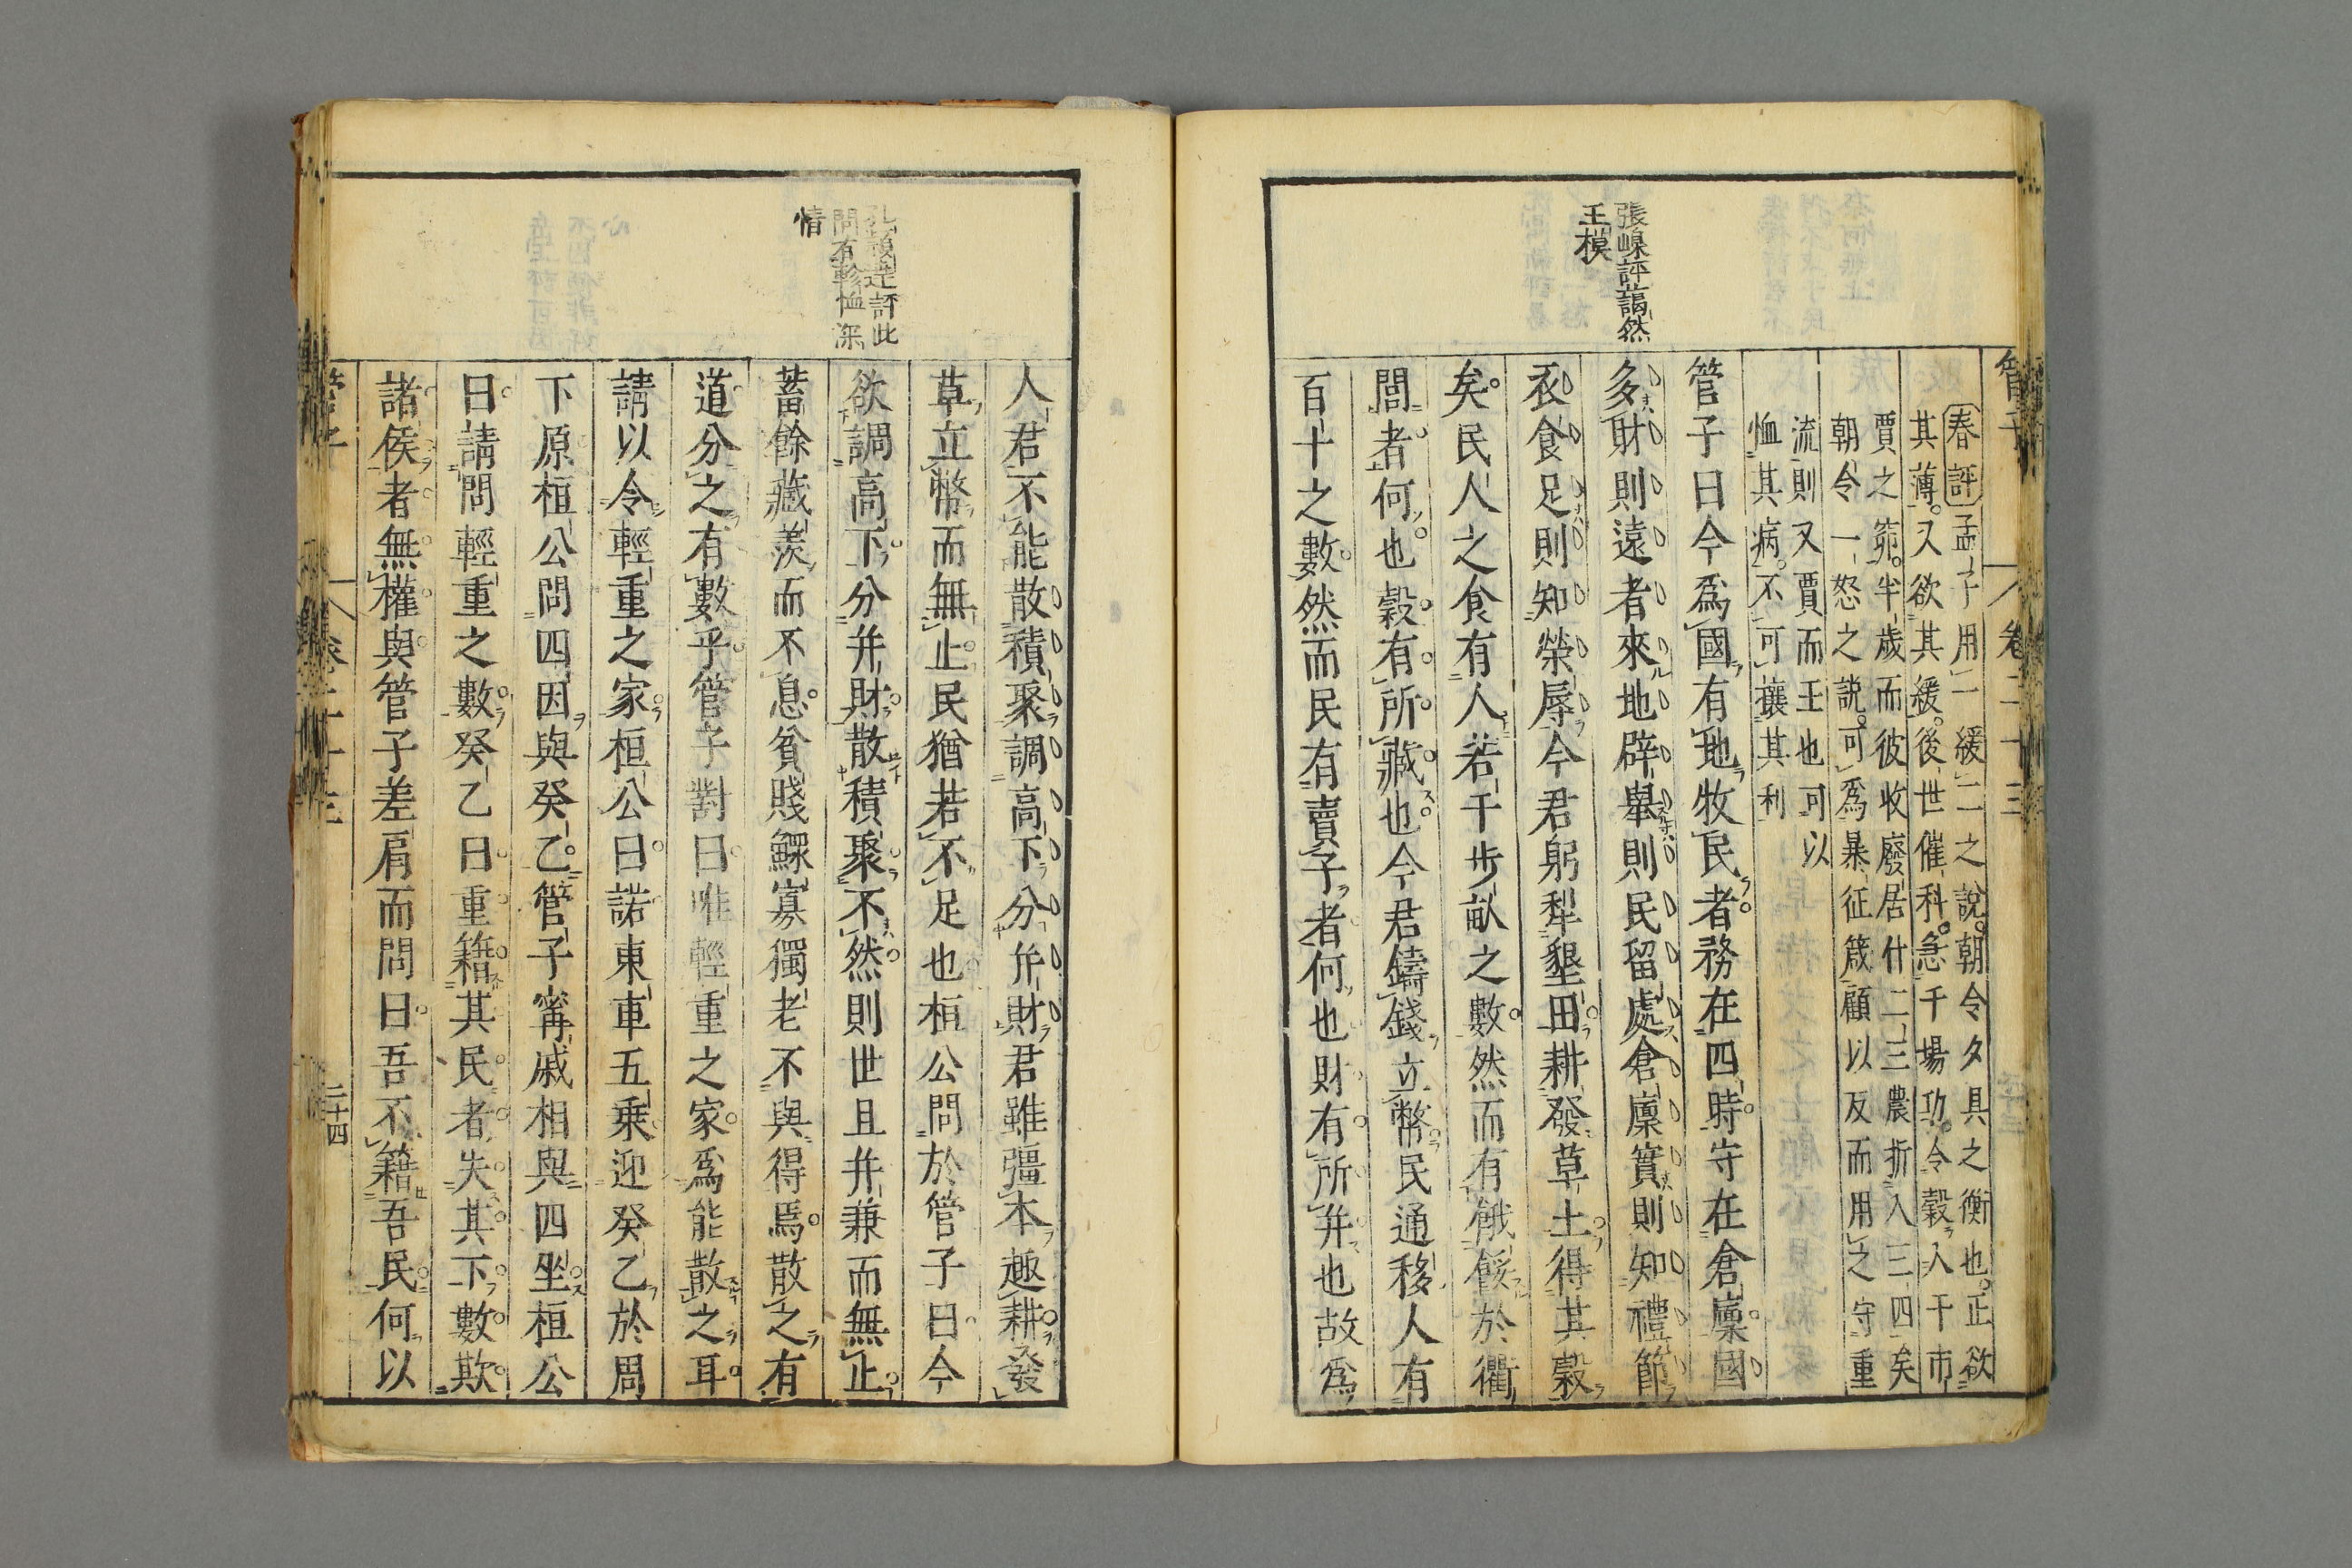 管子
卷二十三
張嵲評藹然
王模
春評孟子用一緩二之說朝令夕具之衡也正欲
其薄又欲其緩後世催科急千場功令穀入干市
賈之節半歲而彼收廢居什二三農折入三四矣
朝令一怒之說可爲暴征箴顧以反而用之守重
流則又賈而王也可以
恤其病不可攘其利
管子曰今爲國有地牧民者務在四時守在倉廩國
多財則遠者來地辟舉則民留處倉廩實則知禮節
衣食足則知榮辱今君躬犁墾田耕發草土得其穀
矣民人之食有人若干步畝之數然而有餓餒於衢
閭者何也穀有所藏也今君鑄錢立幣民通移人有
百十之數然而民有賣子者何也財有所并也故爲
問有軫恤深
情
人君不能散積聚調高下分并財君雖彊本趣耕發
草立幣而無止民猶若不足也桓公問於管子曰今
欲調高下分并財散積聚不然則世且并兼而無止
蓄餘藏羨而不息貧賤鰥寡獨老不與得焉散之有
道分之有數乎管子對曰唯輕重之家爲能散之耳
請以令輕重之家桓公曰諾東車五乘迎癸乙於周
下原桓公問四因與癸乙管子甯戚相與四坐桓公
曰請問輕重之數癸乙曰重籍其民者失其下數欺
諸侯者無權與管子差肩而問曰吾不籍吾民何以
管子
卷二十三
二十四